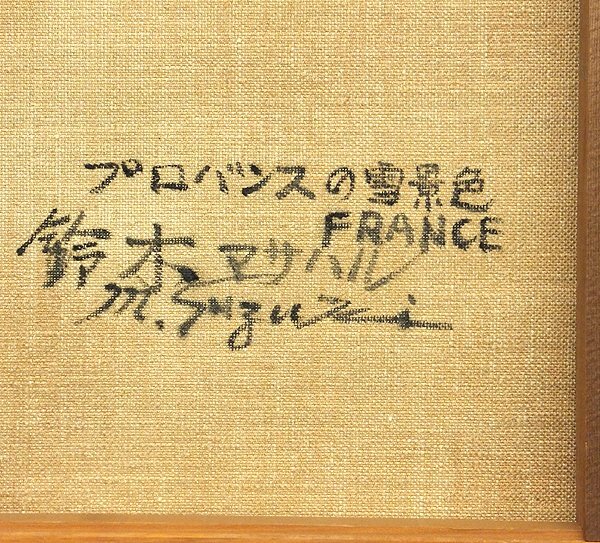 プロバンスの雪景色
FRANCE
鈴木マサハル
M. Suzuki